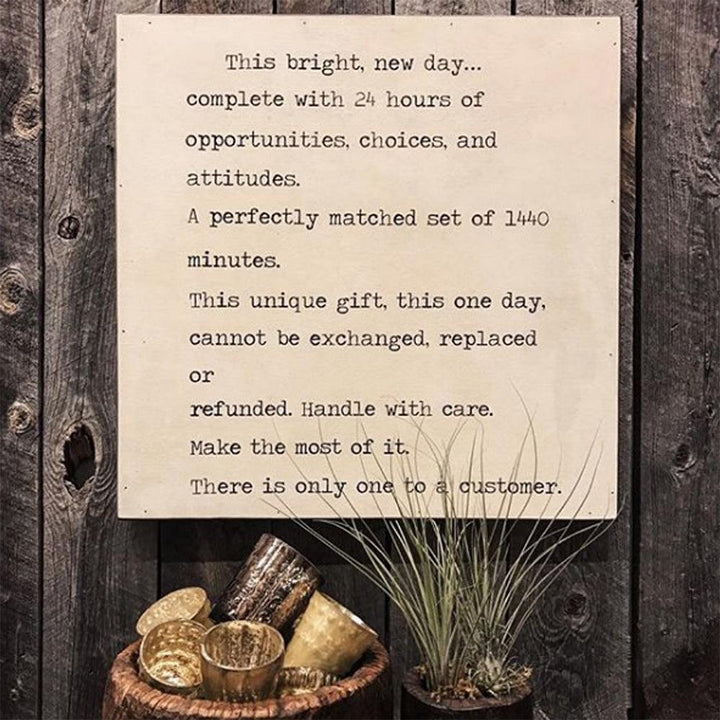 This bright, new day...
complete with 24 hours of
opportunities, choices, and
attitudes.
A perfectly matched set of 1440
minutes.
This unique gift, this one day,
cannot be exchanged, replaced
or
refunded. Handle with care.
Make the most of it.
There is only one to a customer.